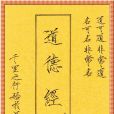 道可道非常道
名可名非常名
道德經
千里之行始於